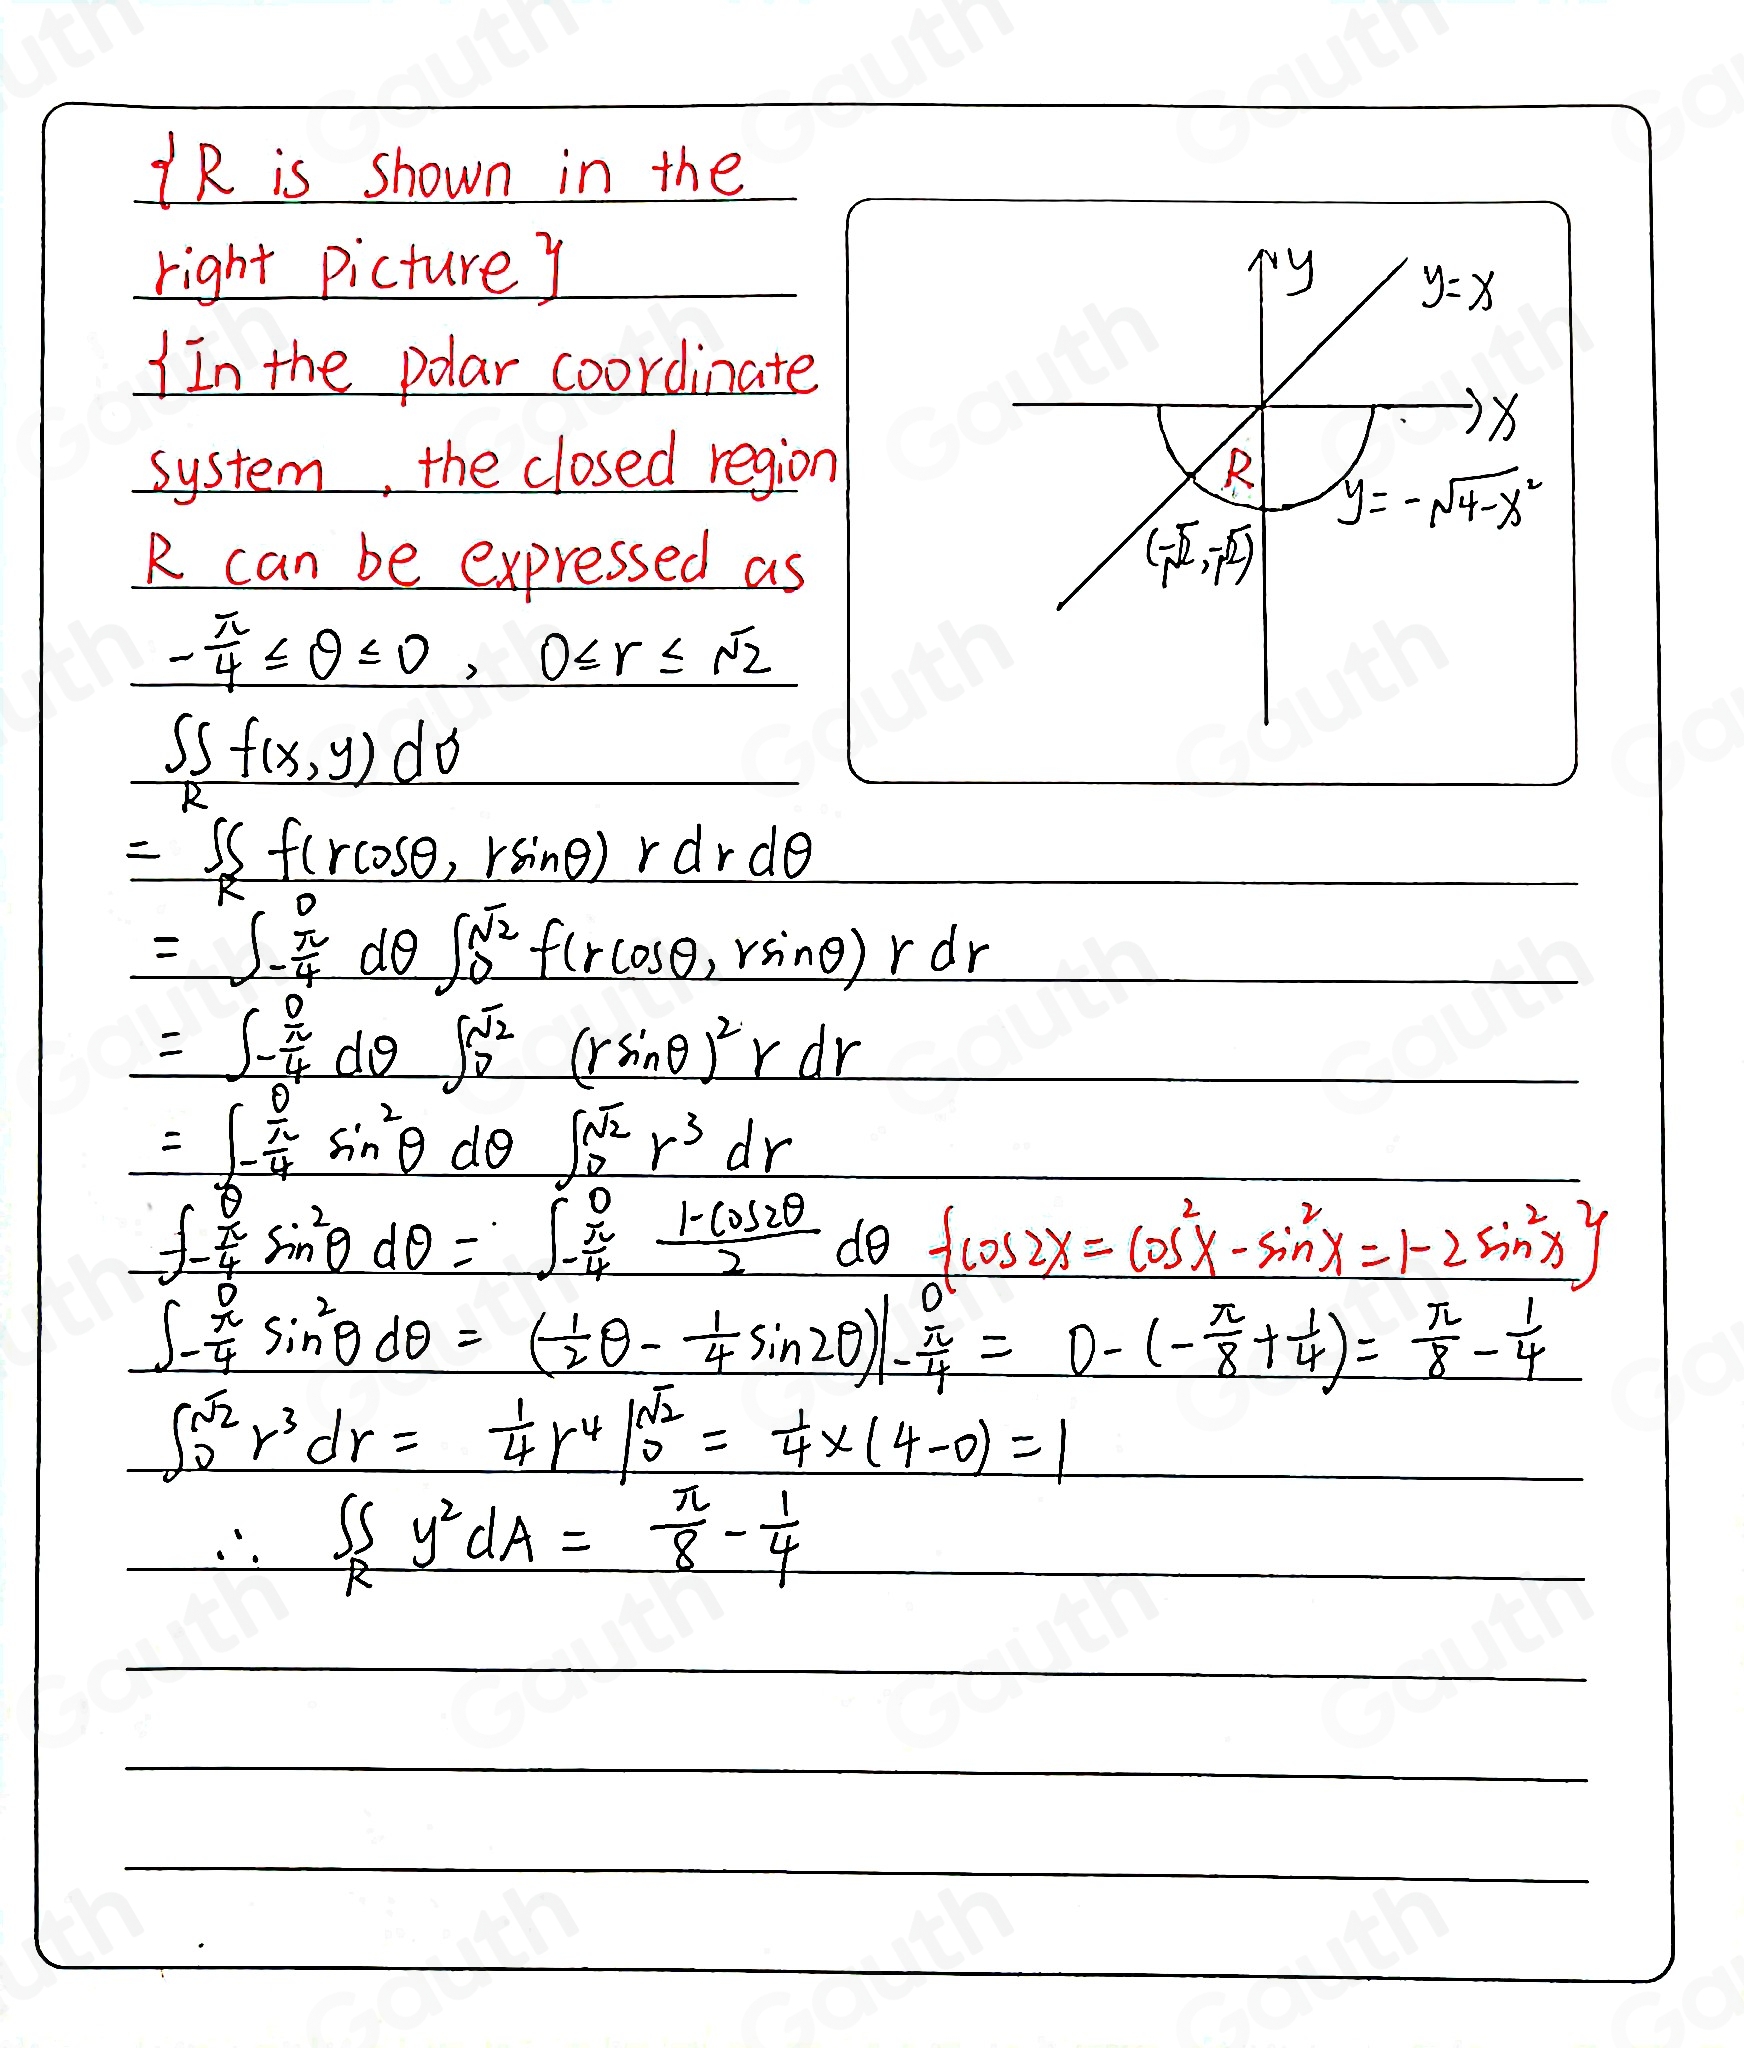 {R is shown in the
right picture}
{In the polar coordinate
system, the closed region
R can be expressed as
-π/4 ≤ θ ≤ 0, 0 ≤ r ≤ √2
∬_R f(x,y) dσ
= ∬_R f(rcosθ, rsinθ) r dr dθ
= ∫_{-π/4}^0 dθ ∫_0^{√2} f(rcosθ, rsinθ) r dr
= ∫_{-π/4}^0 dθ ∫_0^{√2} (rsinθ)² r dr
= ∫_{-π/4}^0 sin²θ dθ ∫_0^{√2} r³ dr
∫_{-π/4}^0 sin²θ dθ = ∫_{-π/4}^0 (1-cos2θ)/2 dθ {cos2x = cos²x - sin²x = 1-2sin²x}
∫_{-π/4}^0 sin²θ dθ = (1/2 θ - 1/4 sin2θ)|_{-π/4}^0 = 0-(-π/8+1/4) = π/8 - 1/4
∫_0^{√2} r³ dr = 1/4 r⁴ |_0^{√2} = 1/4 × (4-0) = 1
∴ ∬_R y² dA = π/8 - 1/4
y
y=x
x
R
y = -√(4-x²)
(-√2, -√2)
Gauth